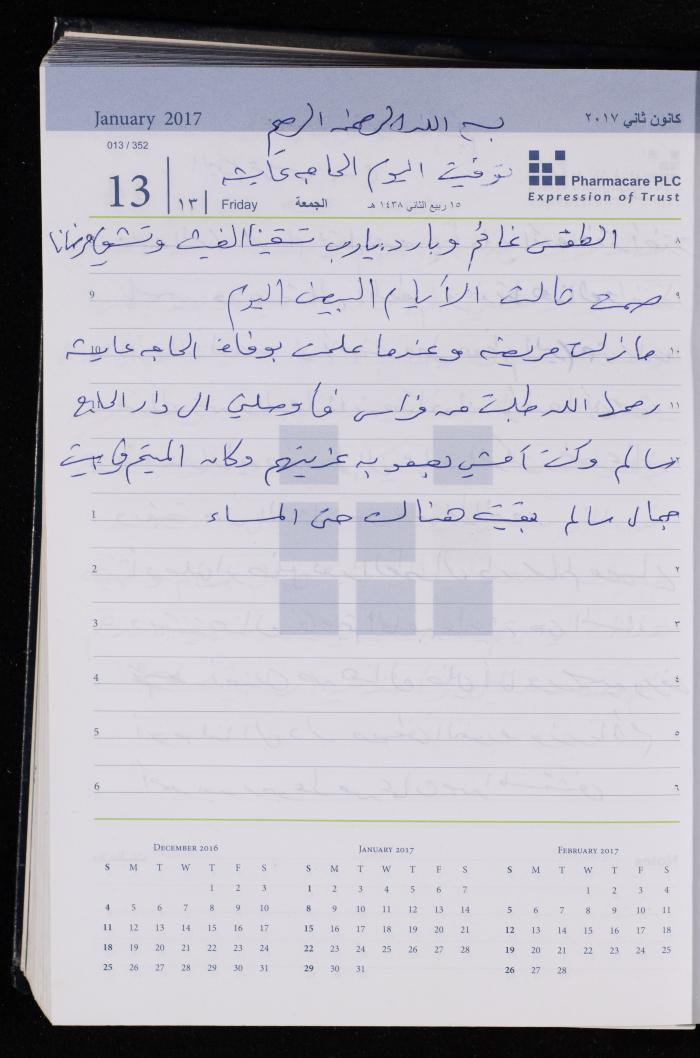 January 2017
كانون ثاني ٢٠١٧
بسم الله الرحمن الرحيم
013 / 352
توفيت اليوم الحاجه عايشه
13
١٣
Friday
الجمعة
١٥ ربيع الثاني ١٤٣٨ هـ
Pharmacare PLC
Expression of Trust
الطقس غائم وبارد. يارب تسقينا الغيث وتشفي مرضانا
٨
صمت ثالث الأيام البيض اليوم
9
٩
مازلت مريضه وعندما علمت بوفاة الحاجه عايشه
10
١٠
رحمها الله طلبت من فراس فأوصلني الى دار الحاج
11
١١
سالم وكنت أمشي بصعوبه عزيتهم وكان الميتم في بيت
جمال سالم بقيت هناك حتى المساء
1
2
٢
3
٣
4
٤
5
٥
6
٦
DECEMBER 2016
S M T W T F S
1 2 3
4 5 6 7 8 9 10
11 12 13 14 15 16 17
18 19 20 21 22 23 24
25 26 27 28 29 30 31
JANUARY 2017
S M T W T F S
1 2 3 4 5 6 7
8 9 10 11 12 13 14
15 16 17 18 19 20 21
22 23 24 25 26 27 28
29 30 31
FEBRUARY 2017
S M T W T F S
1 2 3 4
5 6 7 8 9 10 11
12 13 14 15 16 17 18
19 20 21 22 23 24 25
26 27 28